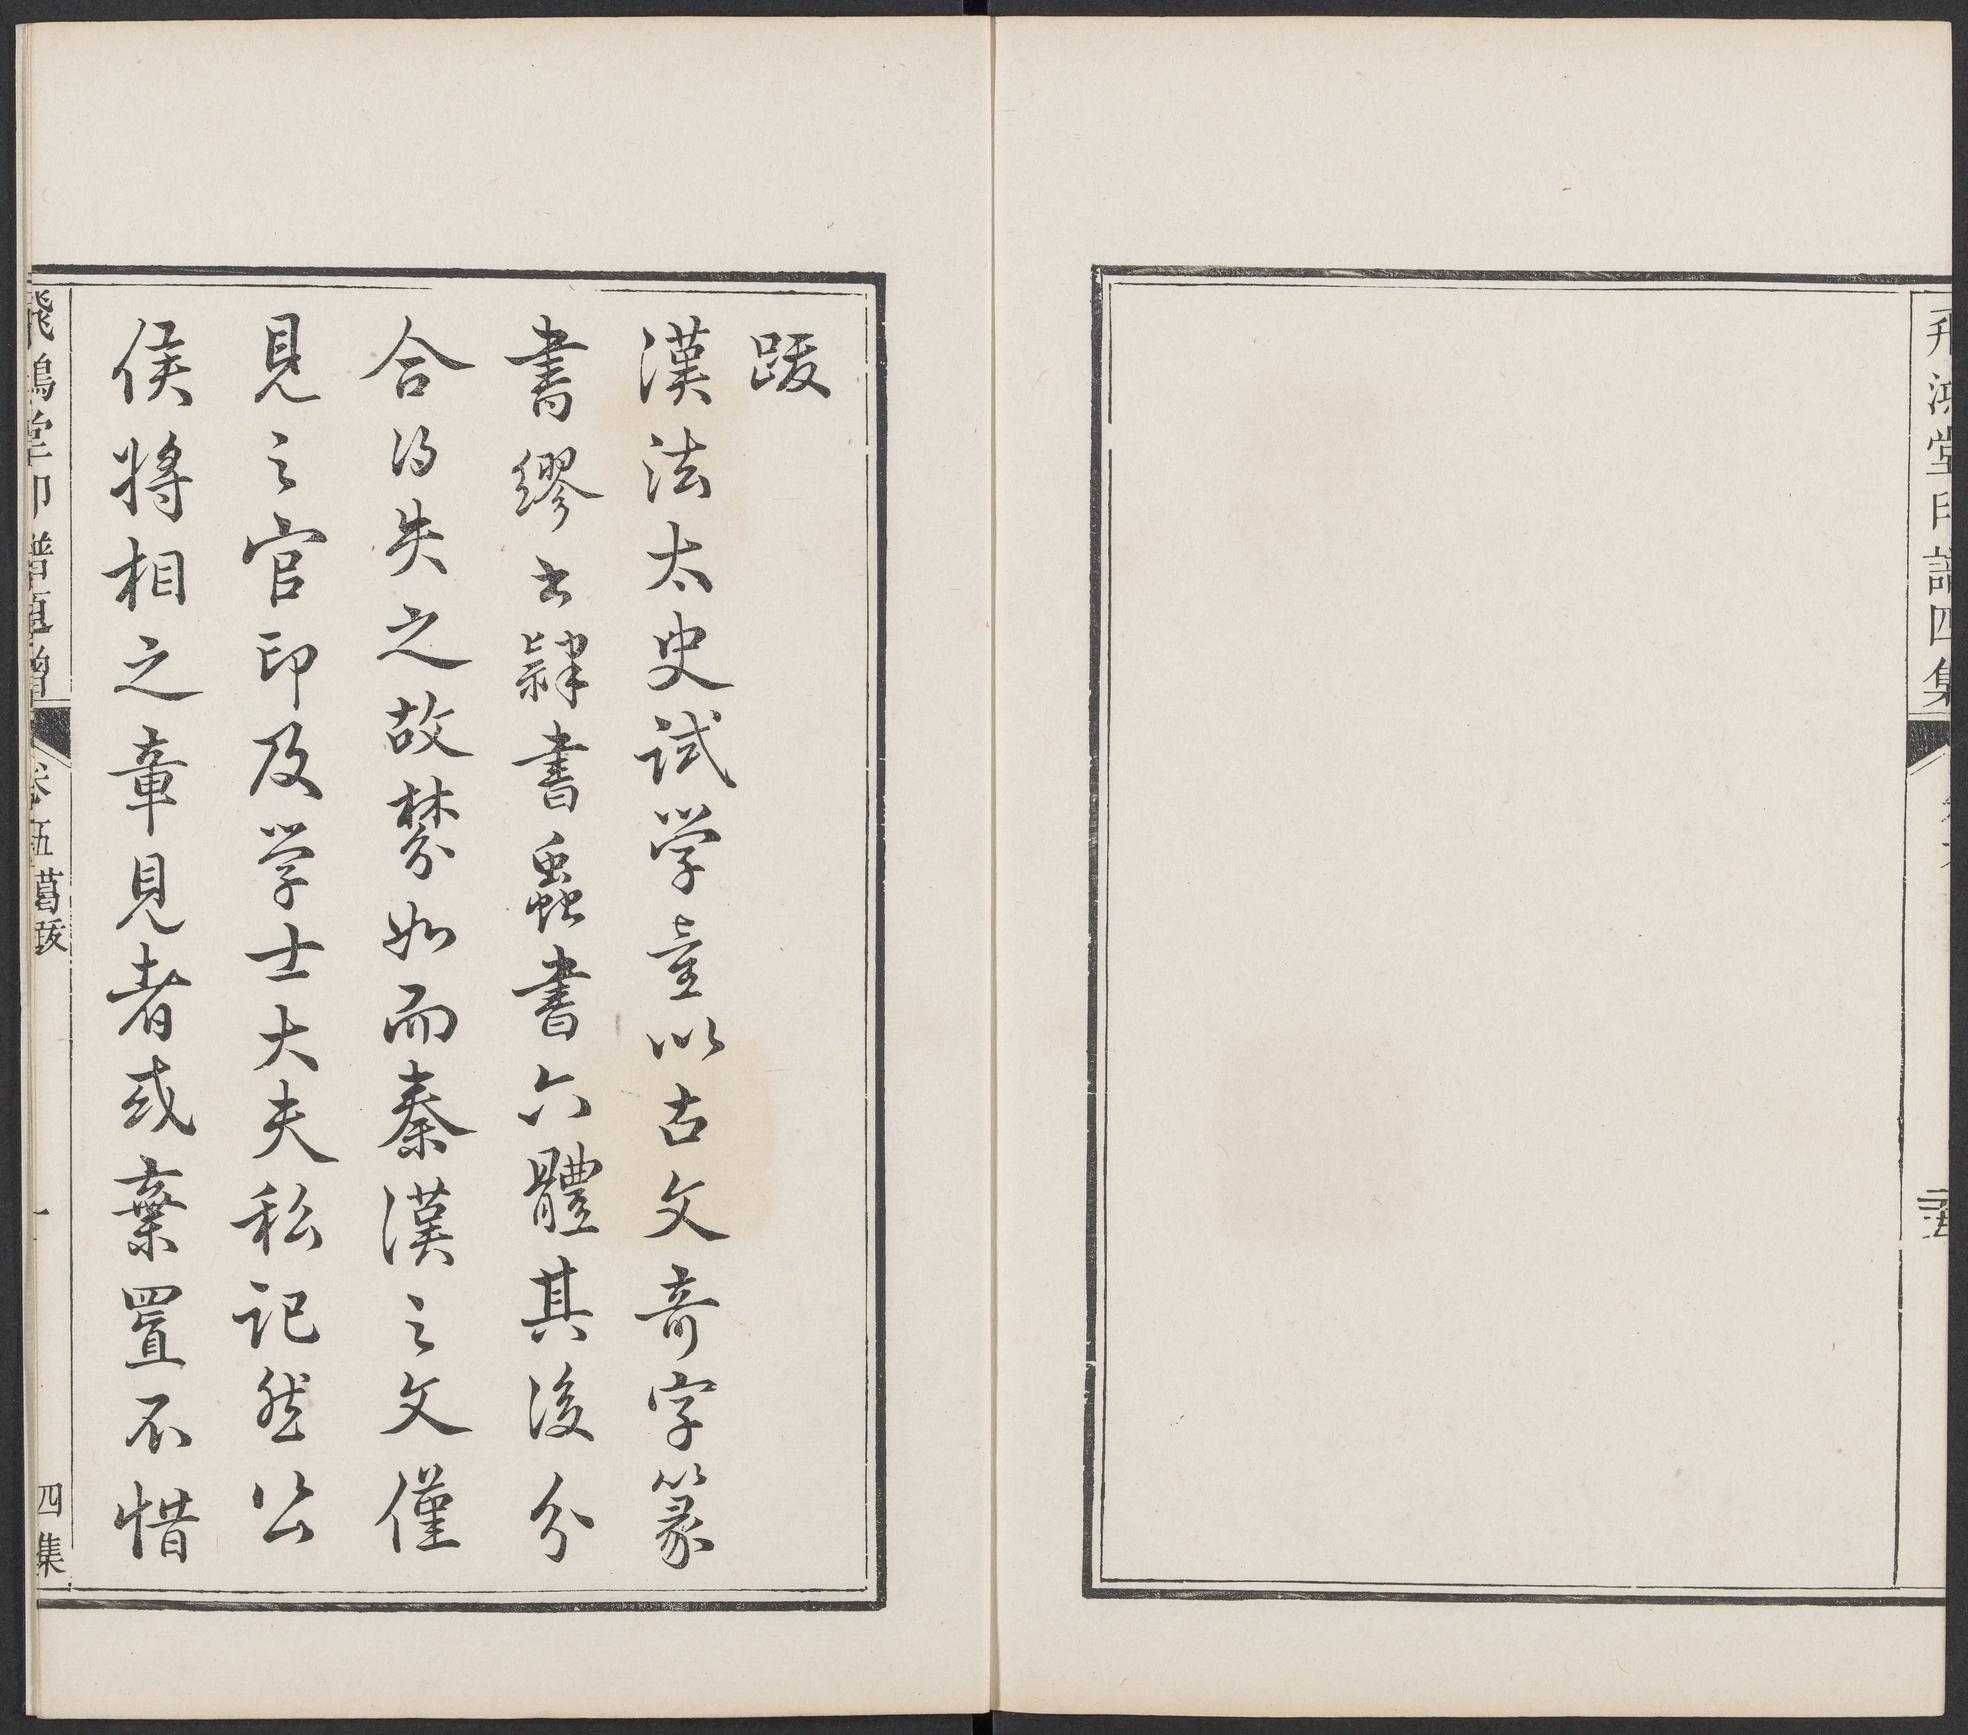 飛鴻堂印譜四集
跋
漢法太史試学童以古文奇字篆
書繆书隸書蟲書六體其後分
合得失之故棼如而秦漢之文僅
見之官印及学士大夫私记然公
侯將相之章見者或棄置不惜
飛鴻堂印譜
卷五葛跋
一
四集